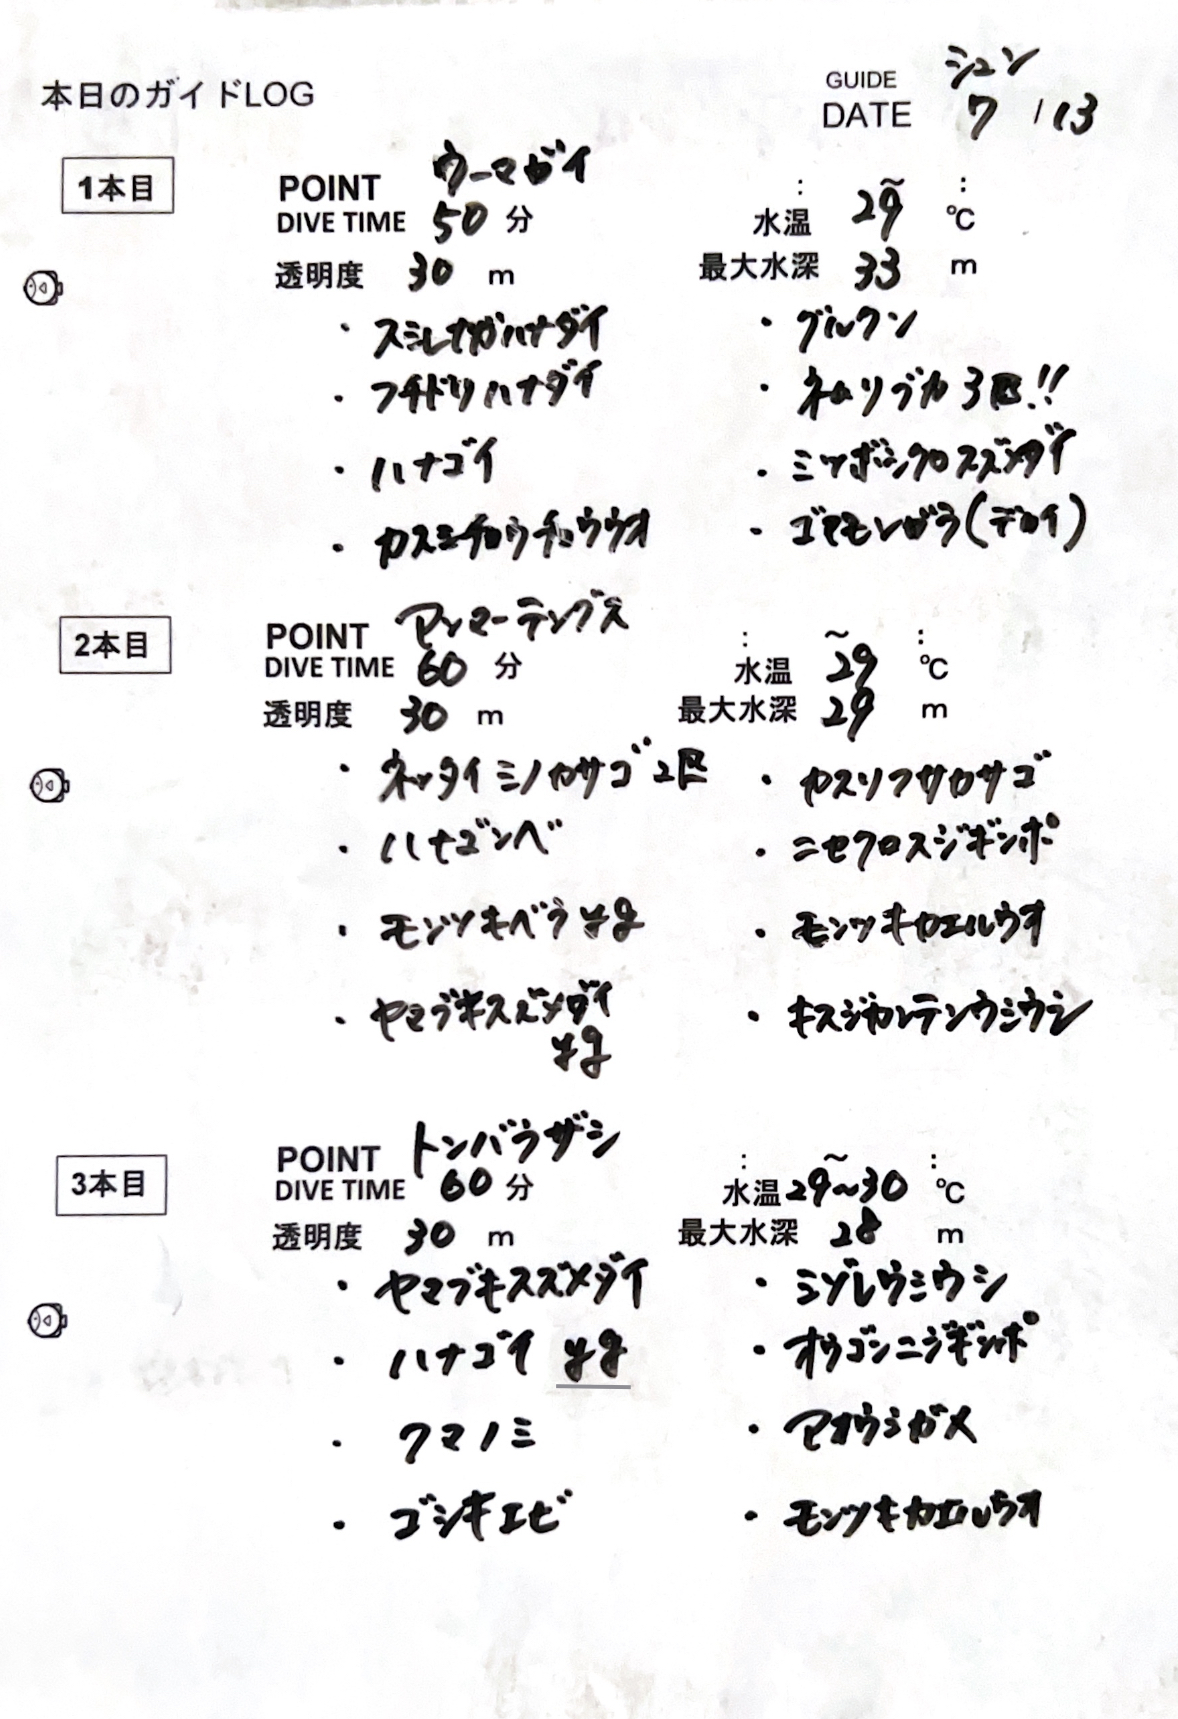 本日のガイドLOG
GUIDE シュン
DATE 7 / 13
1本目
POINT ウーマガイ : ~ :
DIVE TIME 50 分 水温 29 ℃
透明度 30 m 最大水深 33 m
・スミレナガハナダイ ・グルクン
・フチドリハナダイ ・ネムリブカ3匹!!
・ハナゴイ ・ミツボシクロスズメダイ
・カスミチョウチョウウオ ・ゴマモンガラ(デカイ)
2本目
POINT アンマーテングス : ~ :
DIVE TIME 60 分 水温 29 ℃
透明度 30 m 最大水深 29 m
・ネッタイミノカサゴ2匹 ・カスリフサカサゴ
・ハナゴンベ ・ニセクロスジギンポ
・モンツキベラyg ・モンツキカエルウオ
・ヤマブキスズメダイ ・キスジカンテンウミウシ
yg
3本目
POINT トンバラザシ : ~ :
DIVE TIME 60 分 水温 29~30 ℃
透明度 30 m 最大水深 28 m
・ヤマブキスズメダイ ・ミゾレウミウシ
・ハナゴイ yg ・オウゴンニジギンポ
・クマノミ ・アオウミガメ
・ゴシキエビ ・モンツキカエルウオ